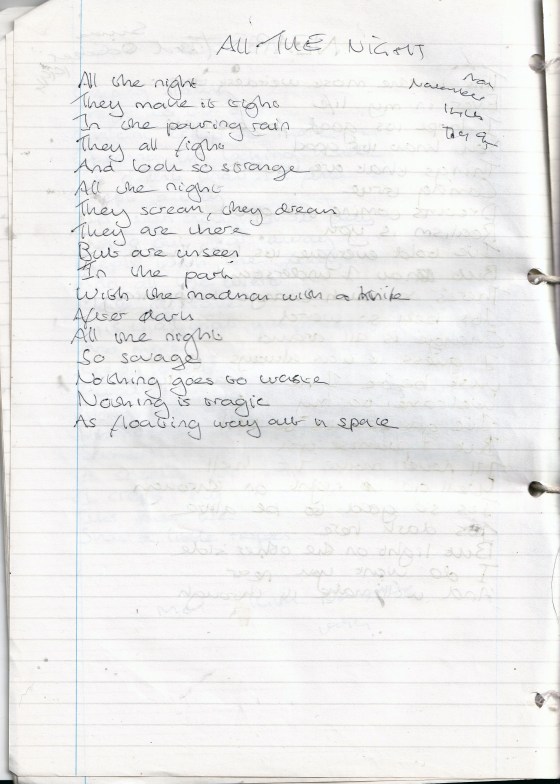 All the night
All the night
November
They make it tight
In the pouring rain
They all fight
And look so strange
All the night
They scream, they dream
They are there
But are unseen
In the park
With the madman with a knife
After dark
All the night
So savage
Nothing goes to waste
Nothing is tragic
As floating way out in space